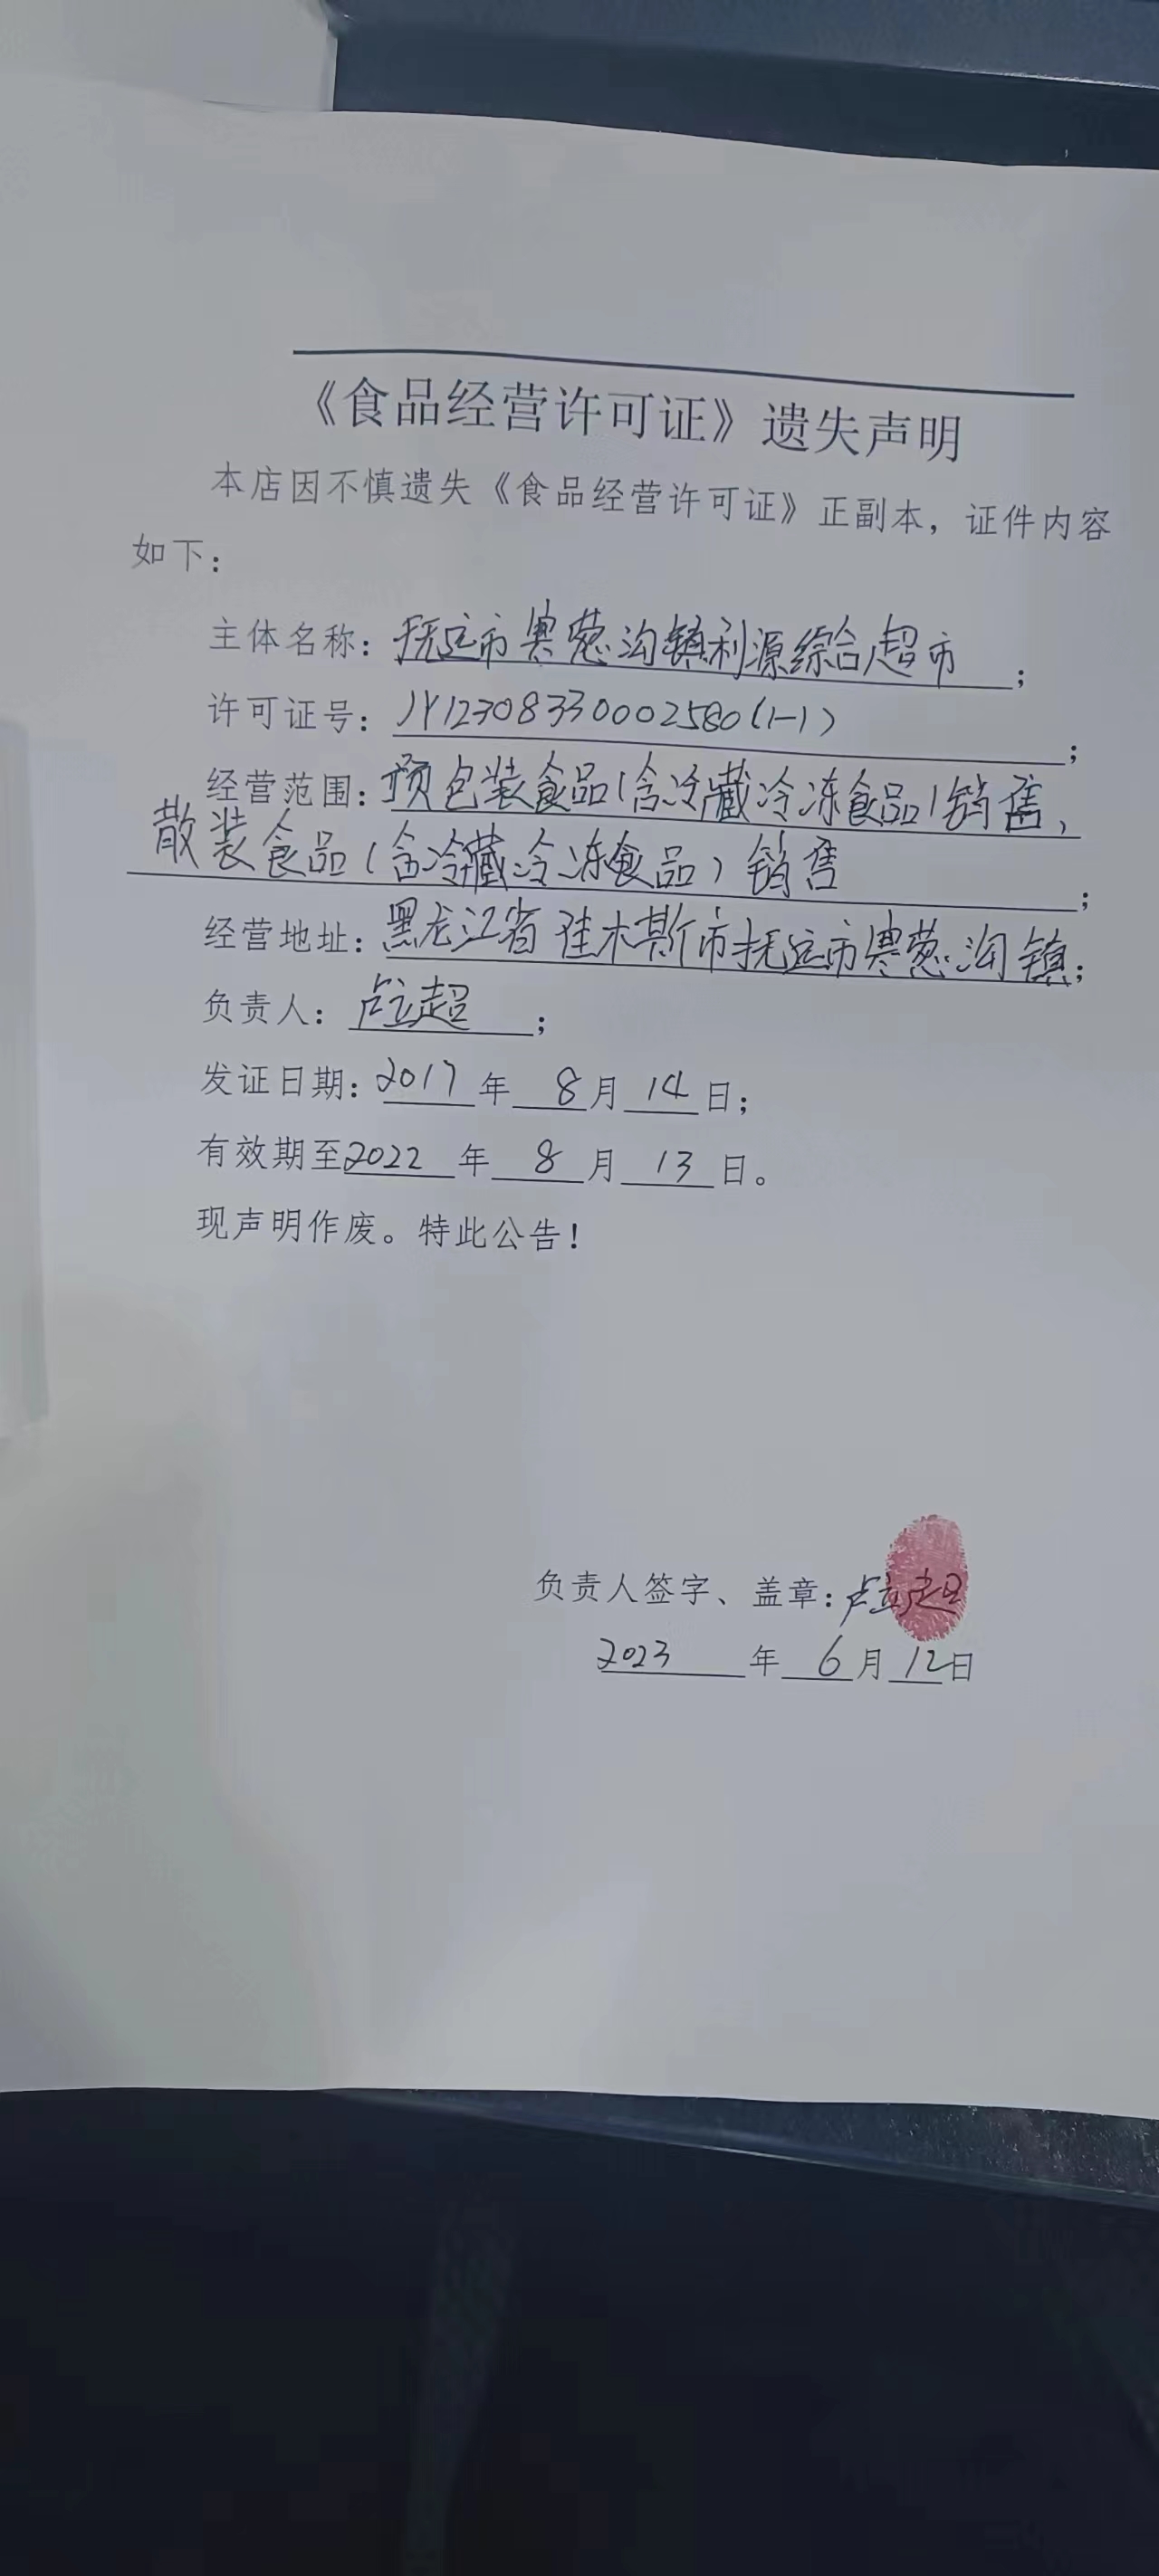 《食品经营许可证》遗失声明
本店因不慎遗失《食品经营许可证》正副本，证件内容
如下：
主体名称：抚远市寒葱沟镇利源综合超市；
许可证号：JY12308330002580(1-1)；
经营范围：预包装食品(含冷藏冷冻食品)销售，
散装食品(含冷藏冷冻食品)销售；
经营地址：黑龙江省佳木斯市抚远市寒葱沟镇；
负责人：卢立超；
发证日期：2017年8月14日；
有效期至2022年8月13日。
现声明作废。特此公告！
负责人签字、盖章：卢立超
2023年6月12日